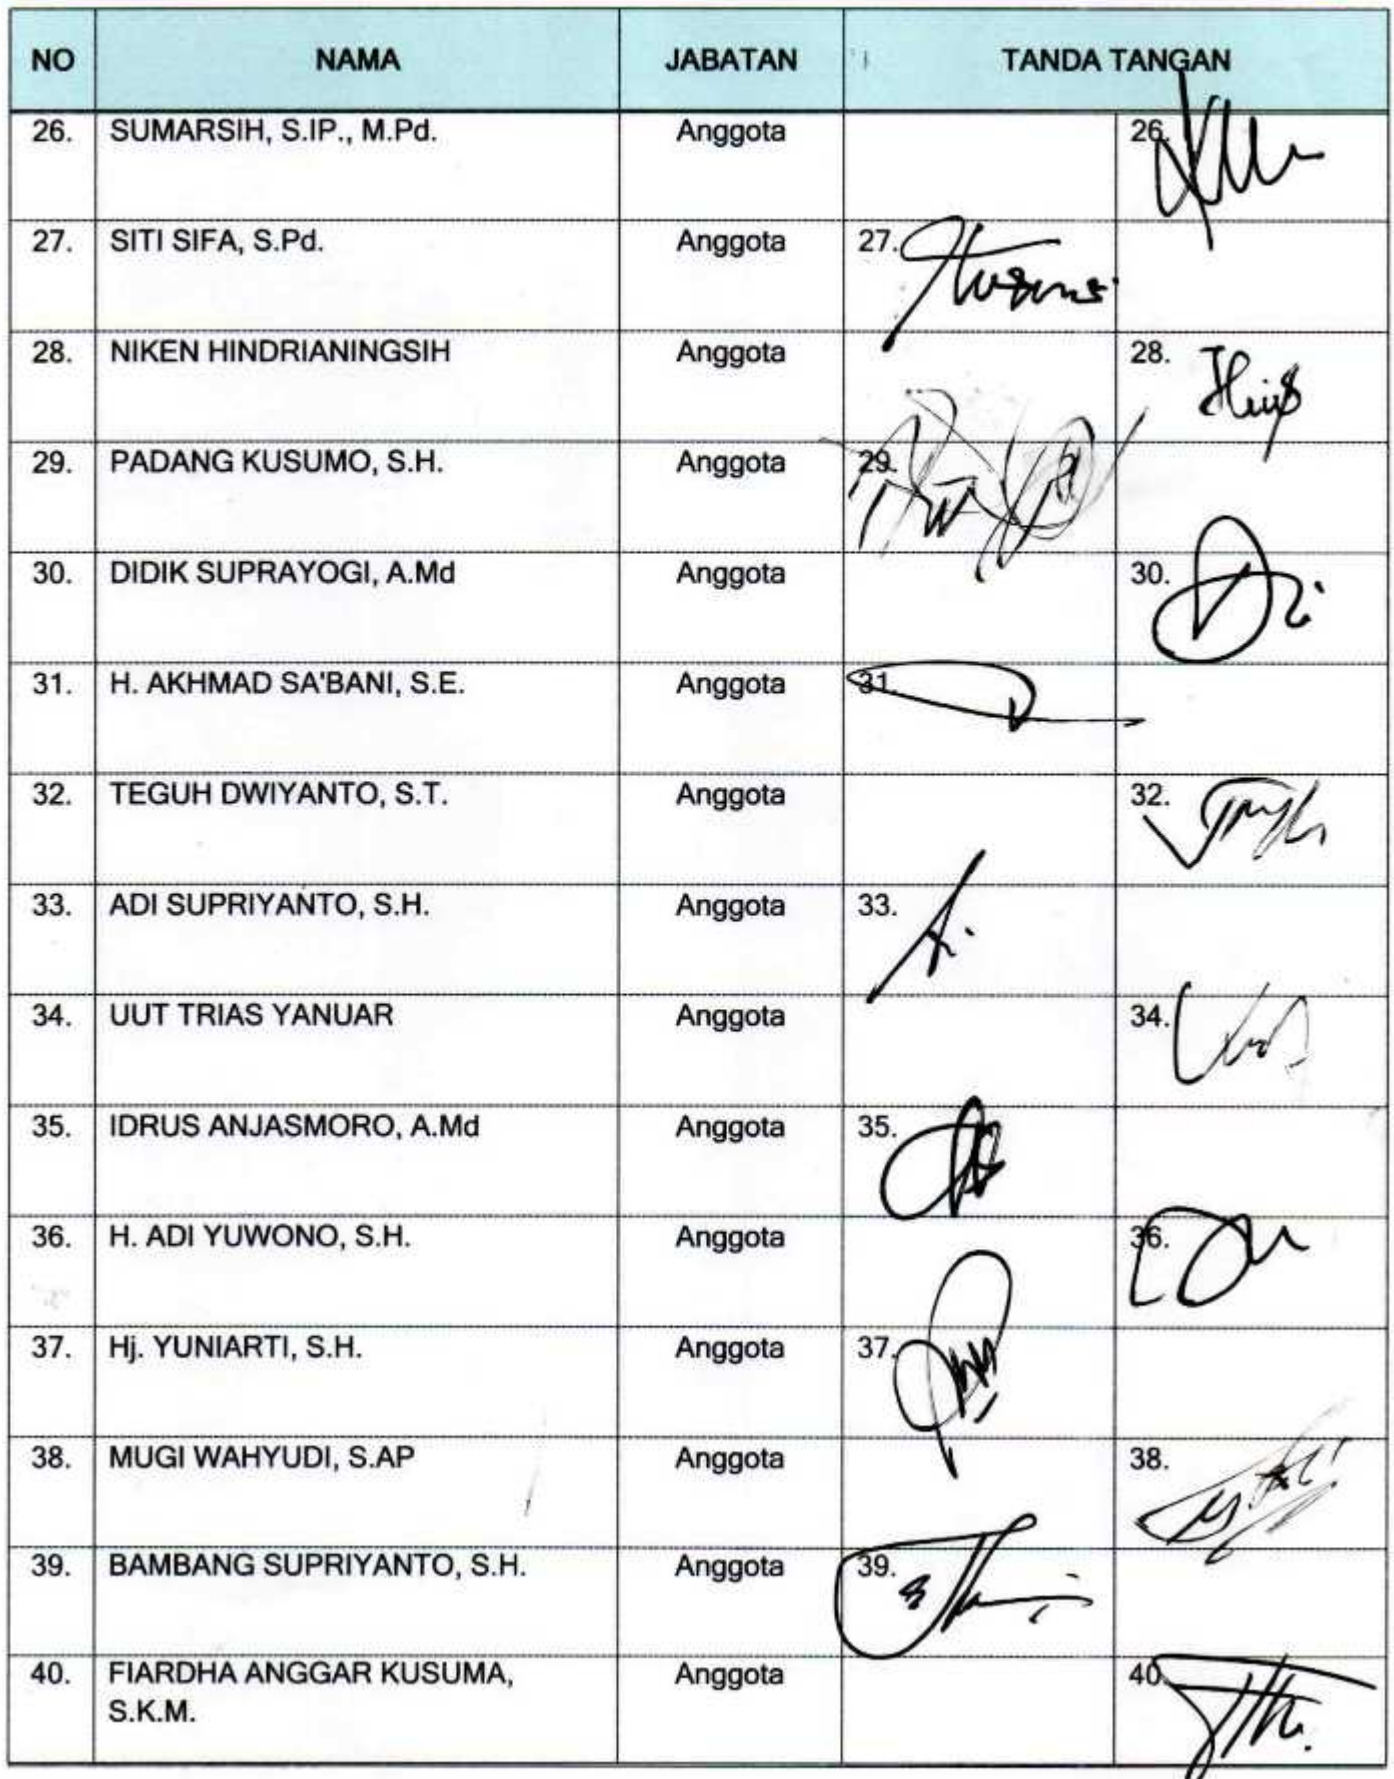 NO NAMA JABATAN TANDA TANGAN
26. SUMARSIH, S.IP., M.Pd. Anggota 26.
27. SITI SIFA, S.Pd. Anggota 27.
28. NIKEN HINDRIANINGSIH Anggota 28.
29. PADANG KUSUMO, S.H. Anggota 29.
30. DIDIK SUPRAYOGI, A.Md Anggota 30.
31. H. AKHMAD SA'BANI, S.E. Anggota 31.
32. TEGUH DWIYANTO, S.T. Anggota 32.
33. ADI SUPRIYANTO, S.H. Anggota 33.
34. UUT TRIAS YANUAR Anggota 34.
35. IDRUS ANJASMORO, A.Md Anggota 35.
36. H. ADI YUWONO, S.H. Anggota 36.
37. Hj. YUNIARTI, S.H. Anggota 37.
38. MUGI WAHYUDI, S.AP Anggota 38.
39. BAMBANG SUPRIYANTO, S.H. Anggota 39.
40. FIARDHA ANGGAR KUSUMA, Anggota 40.
S.K.M.